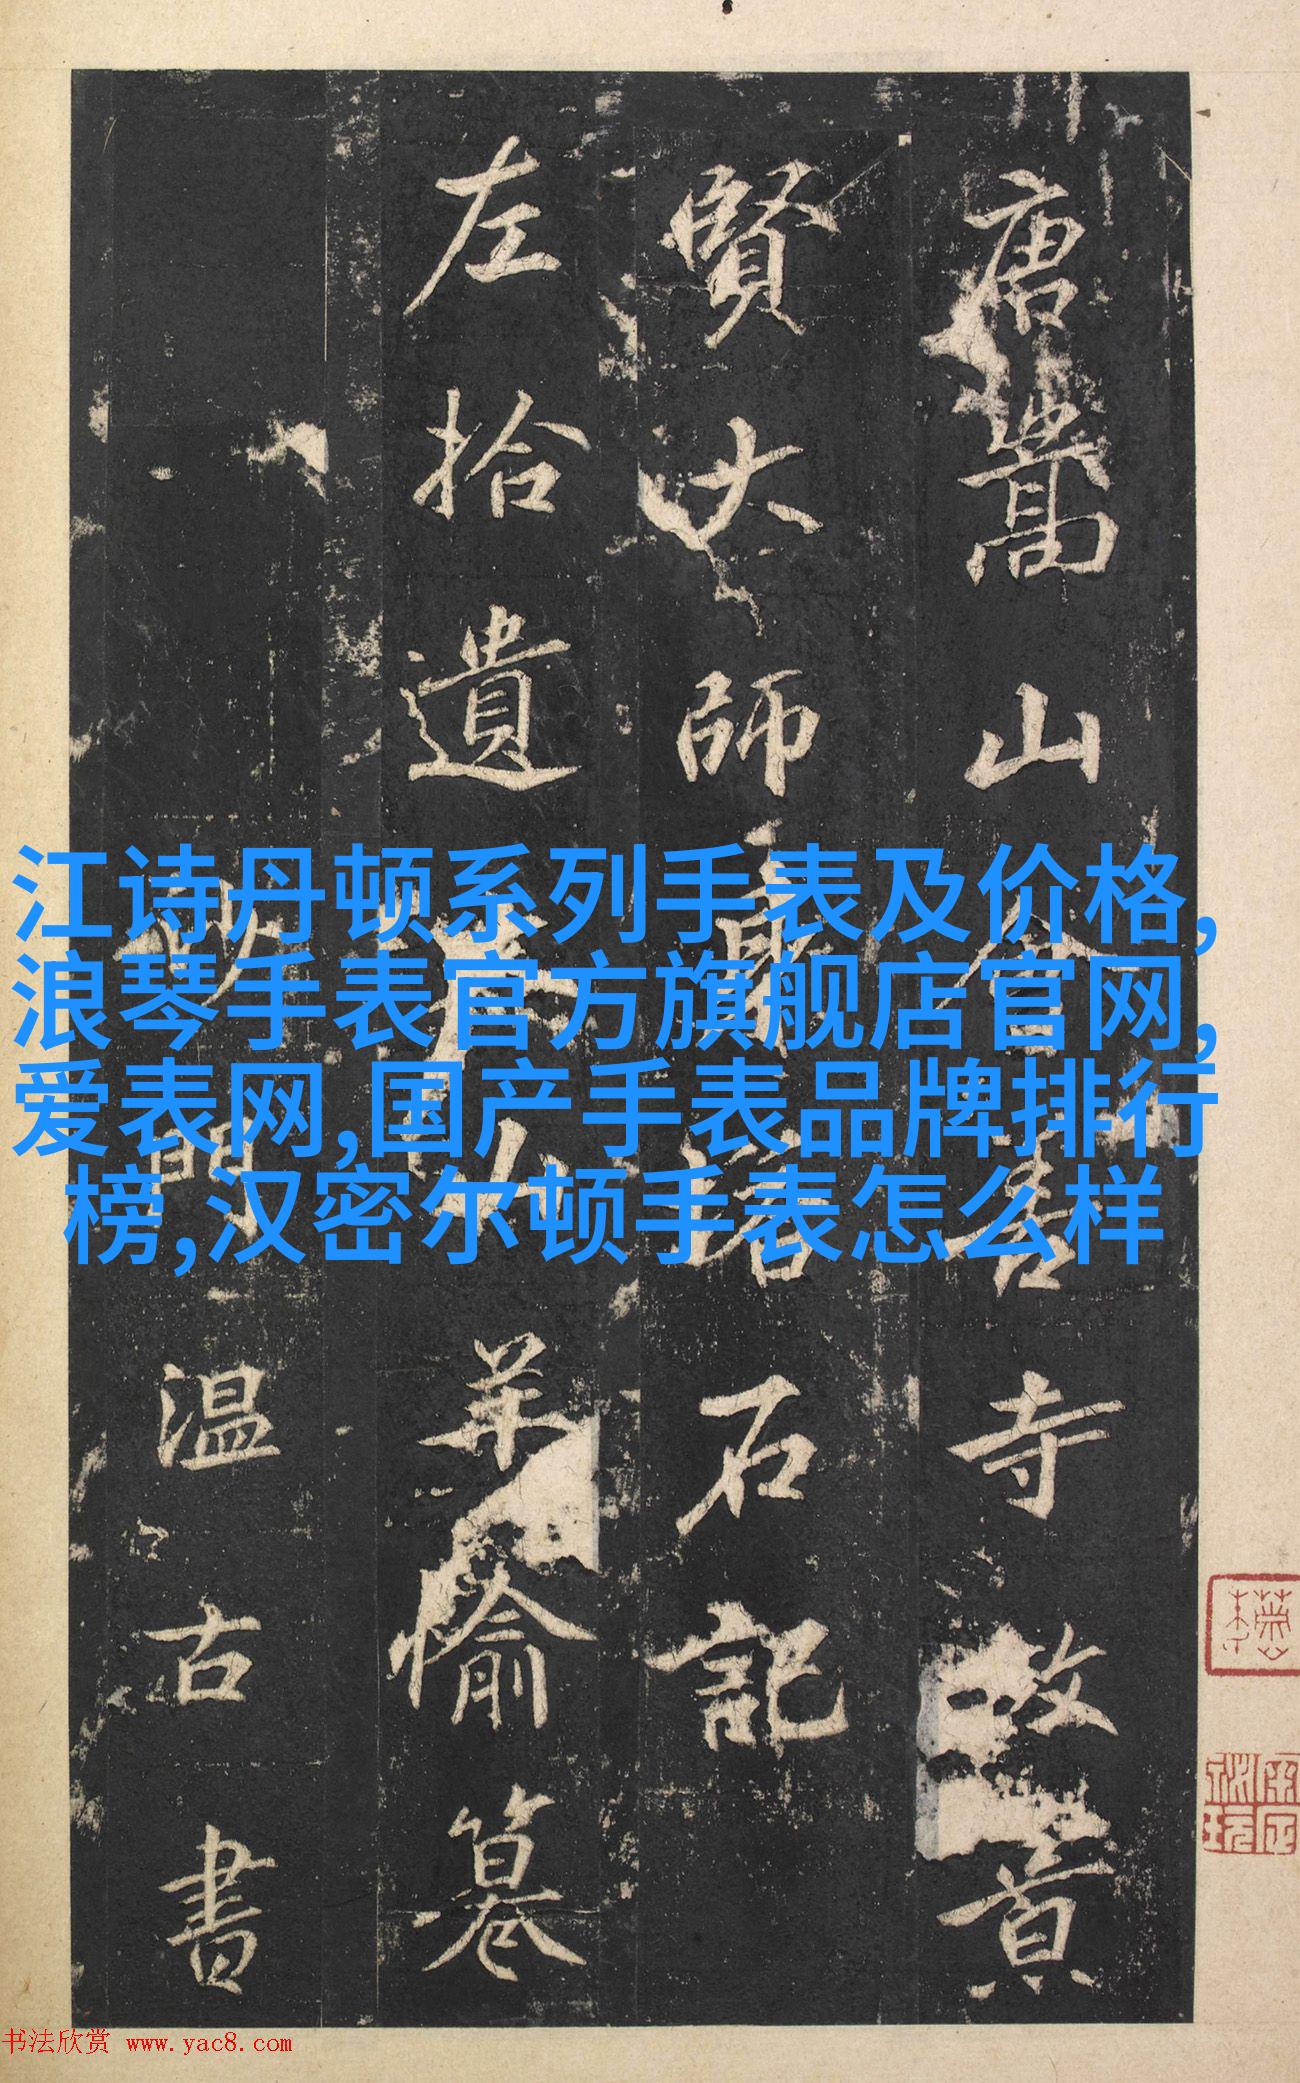 唐嵩山會善寺故景
賢大師身塔石記
左拾遺羊愉纂
沙門溫古書
江诗丹顿系列手表及价格,
浪琴手表官方旗舰店官网,
爱表网,国产手表品牌排行
榜,汉密尔顿手表怎么样
书法欣赏 www.yac8.com